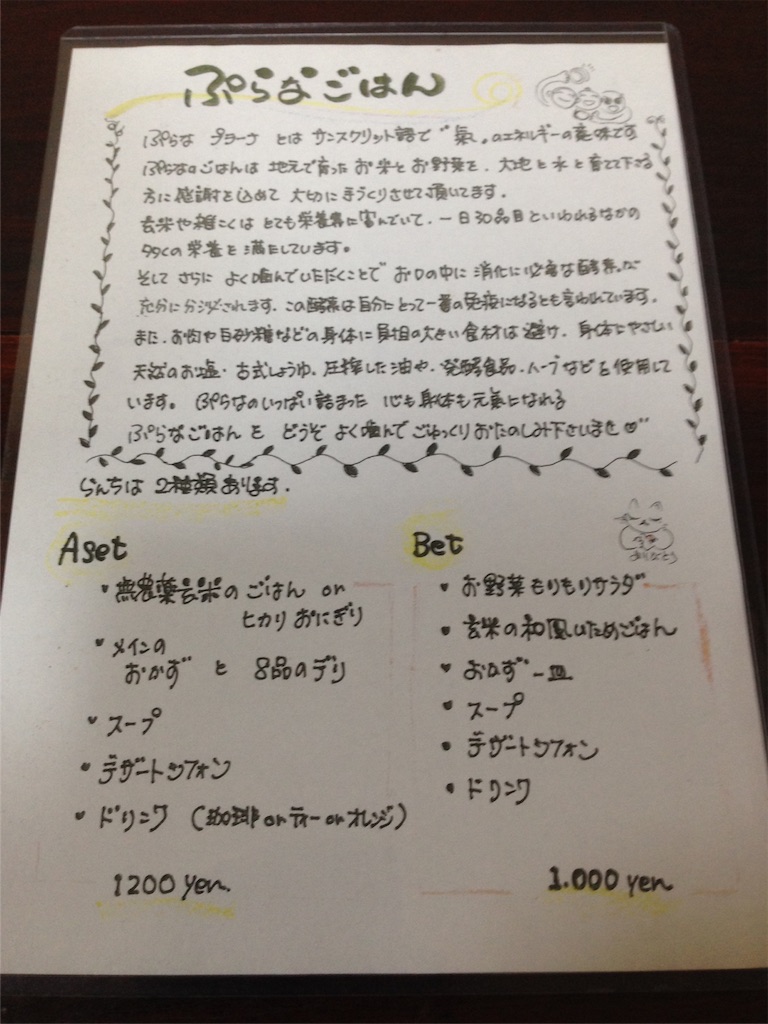 ぷらなごはん
ぷらな プラーナ とは サンスクリット語で "氣"のエネルギーの意味です
ぷらなのごはんは 地元で育った お米と お野菜を、大地と水と育てて下さる
方に感謝を込めて 大切に手づくりさせて頂いてます。
玄米や雑こくは とても栄養界に富んでいて、一日30品目といわれるなかの
多くの栄養を満たしています。
そして さらに よく噛んでいただくことで お口の中に 消化に必要な酵素が
充分に分泌されます。この酵素は自分にとって一番の免疫になるとも言われています。
また、お肉や白砂糖などの身体に負担の大きい食材は避け、身体にやさしい
天然のお塩・古式しょうゆ、圧搾した油や、発酵食品、ハーブなどを使用して
います。 ぷらなのいっぱい詰まった 心も身体も元氣になれる
ぷらなごはんを どうぞ よく噛んで ごゆっくりおたのしみ下さいませ
らんちは 2種類あります。
Aset
・無農薬玄米のごはん or
ヒカリおにぎり
・メインの
おかず と 8品のデリ
・スープ
・デザートシフォン
・ドリンク (珈琲 or ティー or オレンジ)
1200 yen.
Bet
ありがとう
・お野菜もりもりサラダ
・玄米の和風いためごはん
・おかず一皿
・スープ
・デザートシフォン
・ドリンク
1.000 yen